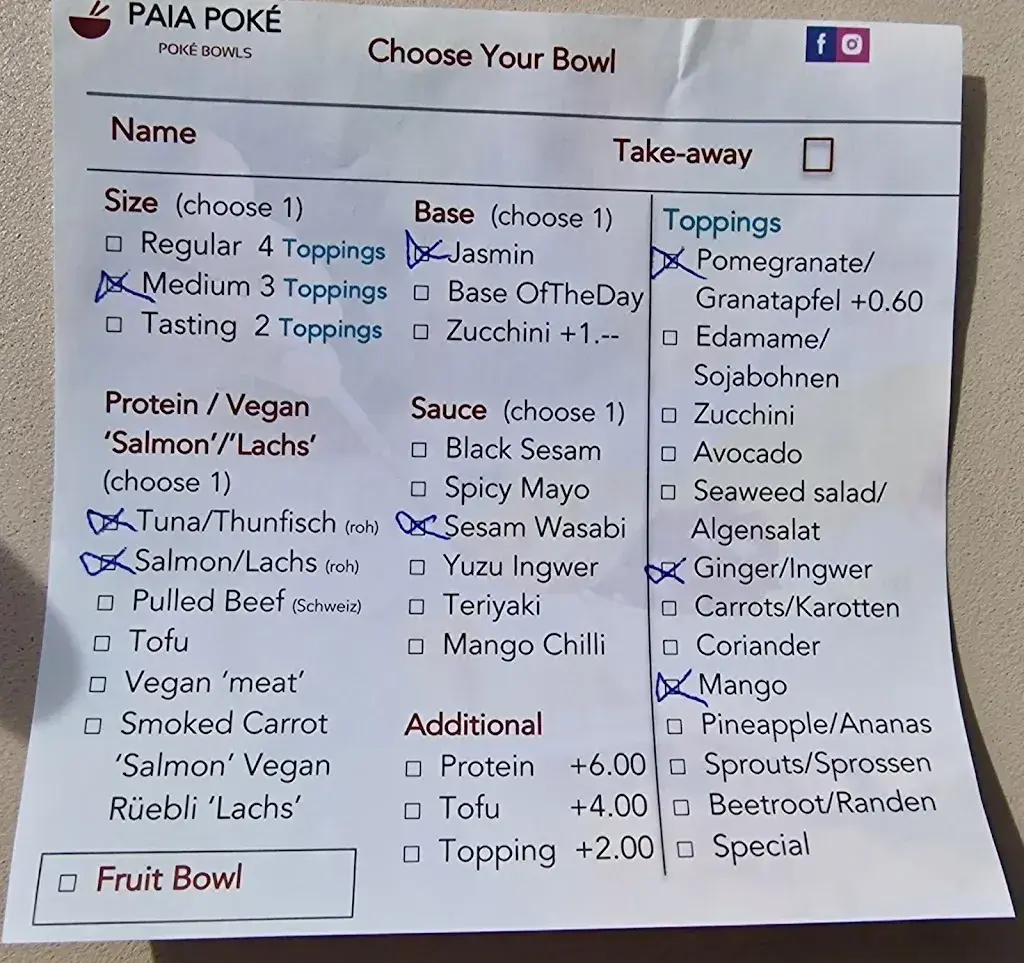 PAIA POKÉ
POKÉ BOWLS
Choose Your Bowl
f
Name
Take-away
Size (choose 1)
Regular 4 Toppings
Medium 3 Toppings
Tasting 2 Toppings
Protein / Vegan
'Salmon'/'Lachs'
(choose 1)
Tuna/Thunfisch (roh)
Salmon/Lachs (roh)
Pulled Beef (Schweiz)
Tofu
Vegan 'meat'
Smoked Carrot
'Salmon' Vegan
Rüebli 'Lachs'
Fruit Bowl
Base (choose 1)
Jasmin
Base OfTheDay
Zucchini +1.--
Sauce (choose 1)
Black Sesam
Spicy Mayo
Sesam Wasabi
Yuzu Ingwer
Teriyaki
Mango Chilli
Additional
Protein +6.00
Tofu +4.00
Topping +2.00
Toppings
Pomegranate/
Granatapfel +0.60
Edamame/
Sojabohnen
Zucchini
Avocado
Seaweed salad/
Algensalat
Ginger/Ingwer
Carrots/Karotten
Coriander
Mango
Pineapple/Ananas
Sprouts/Sprossen
Beetroot/Randen
Special